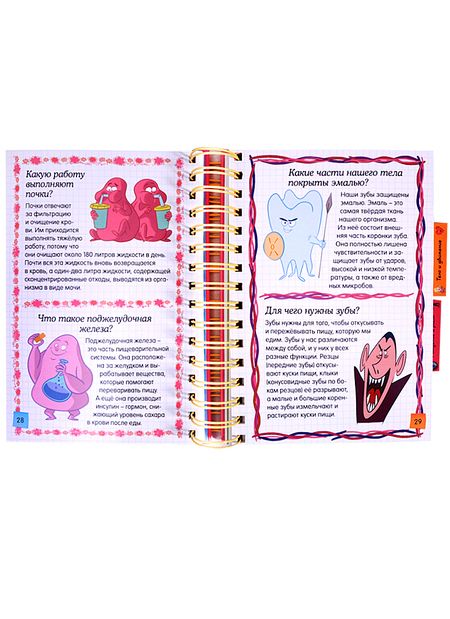 Какую работу
выполняют
почки?
Почки отвечают
за фильтрацию
и очищение кро-
ви. Им приходится
выполнять тяжёлую
работу, потому что
они очищают около 180 литров жидкости в день.
Почти вся эта жидкость вновь возвращается
в кровь, а один-два литра жидкости, содержащей
конечные отходы, выводятся из орга-
низма в виде мочи.
Что такое поджелудочная
железа?
Поджелудочная железа –
это часть пищеварительной
системы. Она расположе-
на за желудком и вы-
рабатывает вещества,
которые помогают
переваривать пищу.
А ещё она производит
инсулин – гормон, сни-
жающий уровень сахара
в крови после еды.
28
Какие части нашего тела
покрыты эмалью?
Наши зубы защищены
эмалью. Эмаль – это
самая твёрдая ткань
нашего организма.
Из неё состоит внеш-
няя часть коронки зуба.
Она полностью лишена
чувствительности и за-
щищает зубы от удара,
высокой и низкой темпе-
ратуры, а также от вред-
ных микробов.
Для чего нужны зубы?
Зубы нужны для того, чтобы откусывать
и пережёвывать пищу, которую мы
едим. Зубы у нас различаются
между собой, и у них у всех
разные функции. Резцы
(передние зубы) откусы-
вают куски пищи, клыки
(конусовидные зубы по бо-
кам резцов) её разрывают,
а малые и большие корен-
ные зубы измельчают и
растирают куски пищи.
29
Тело и движение